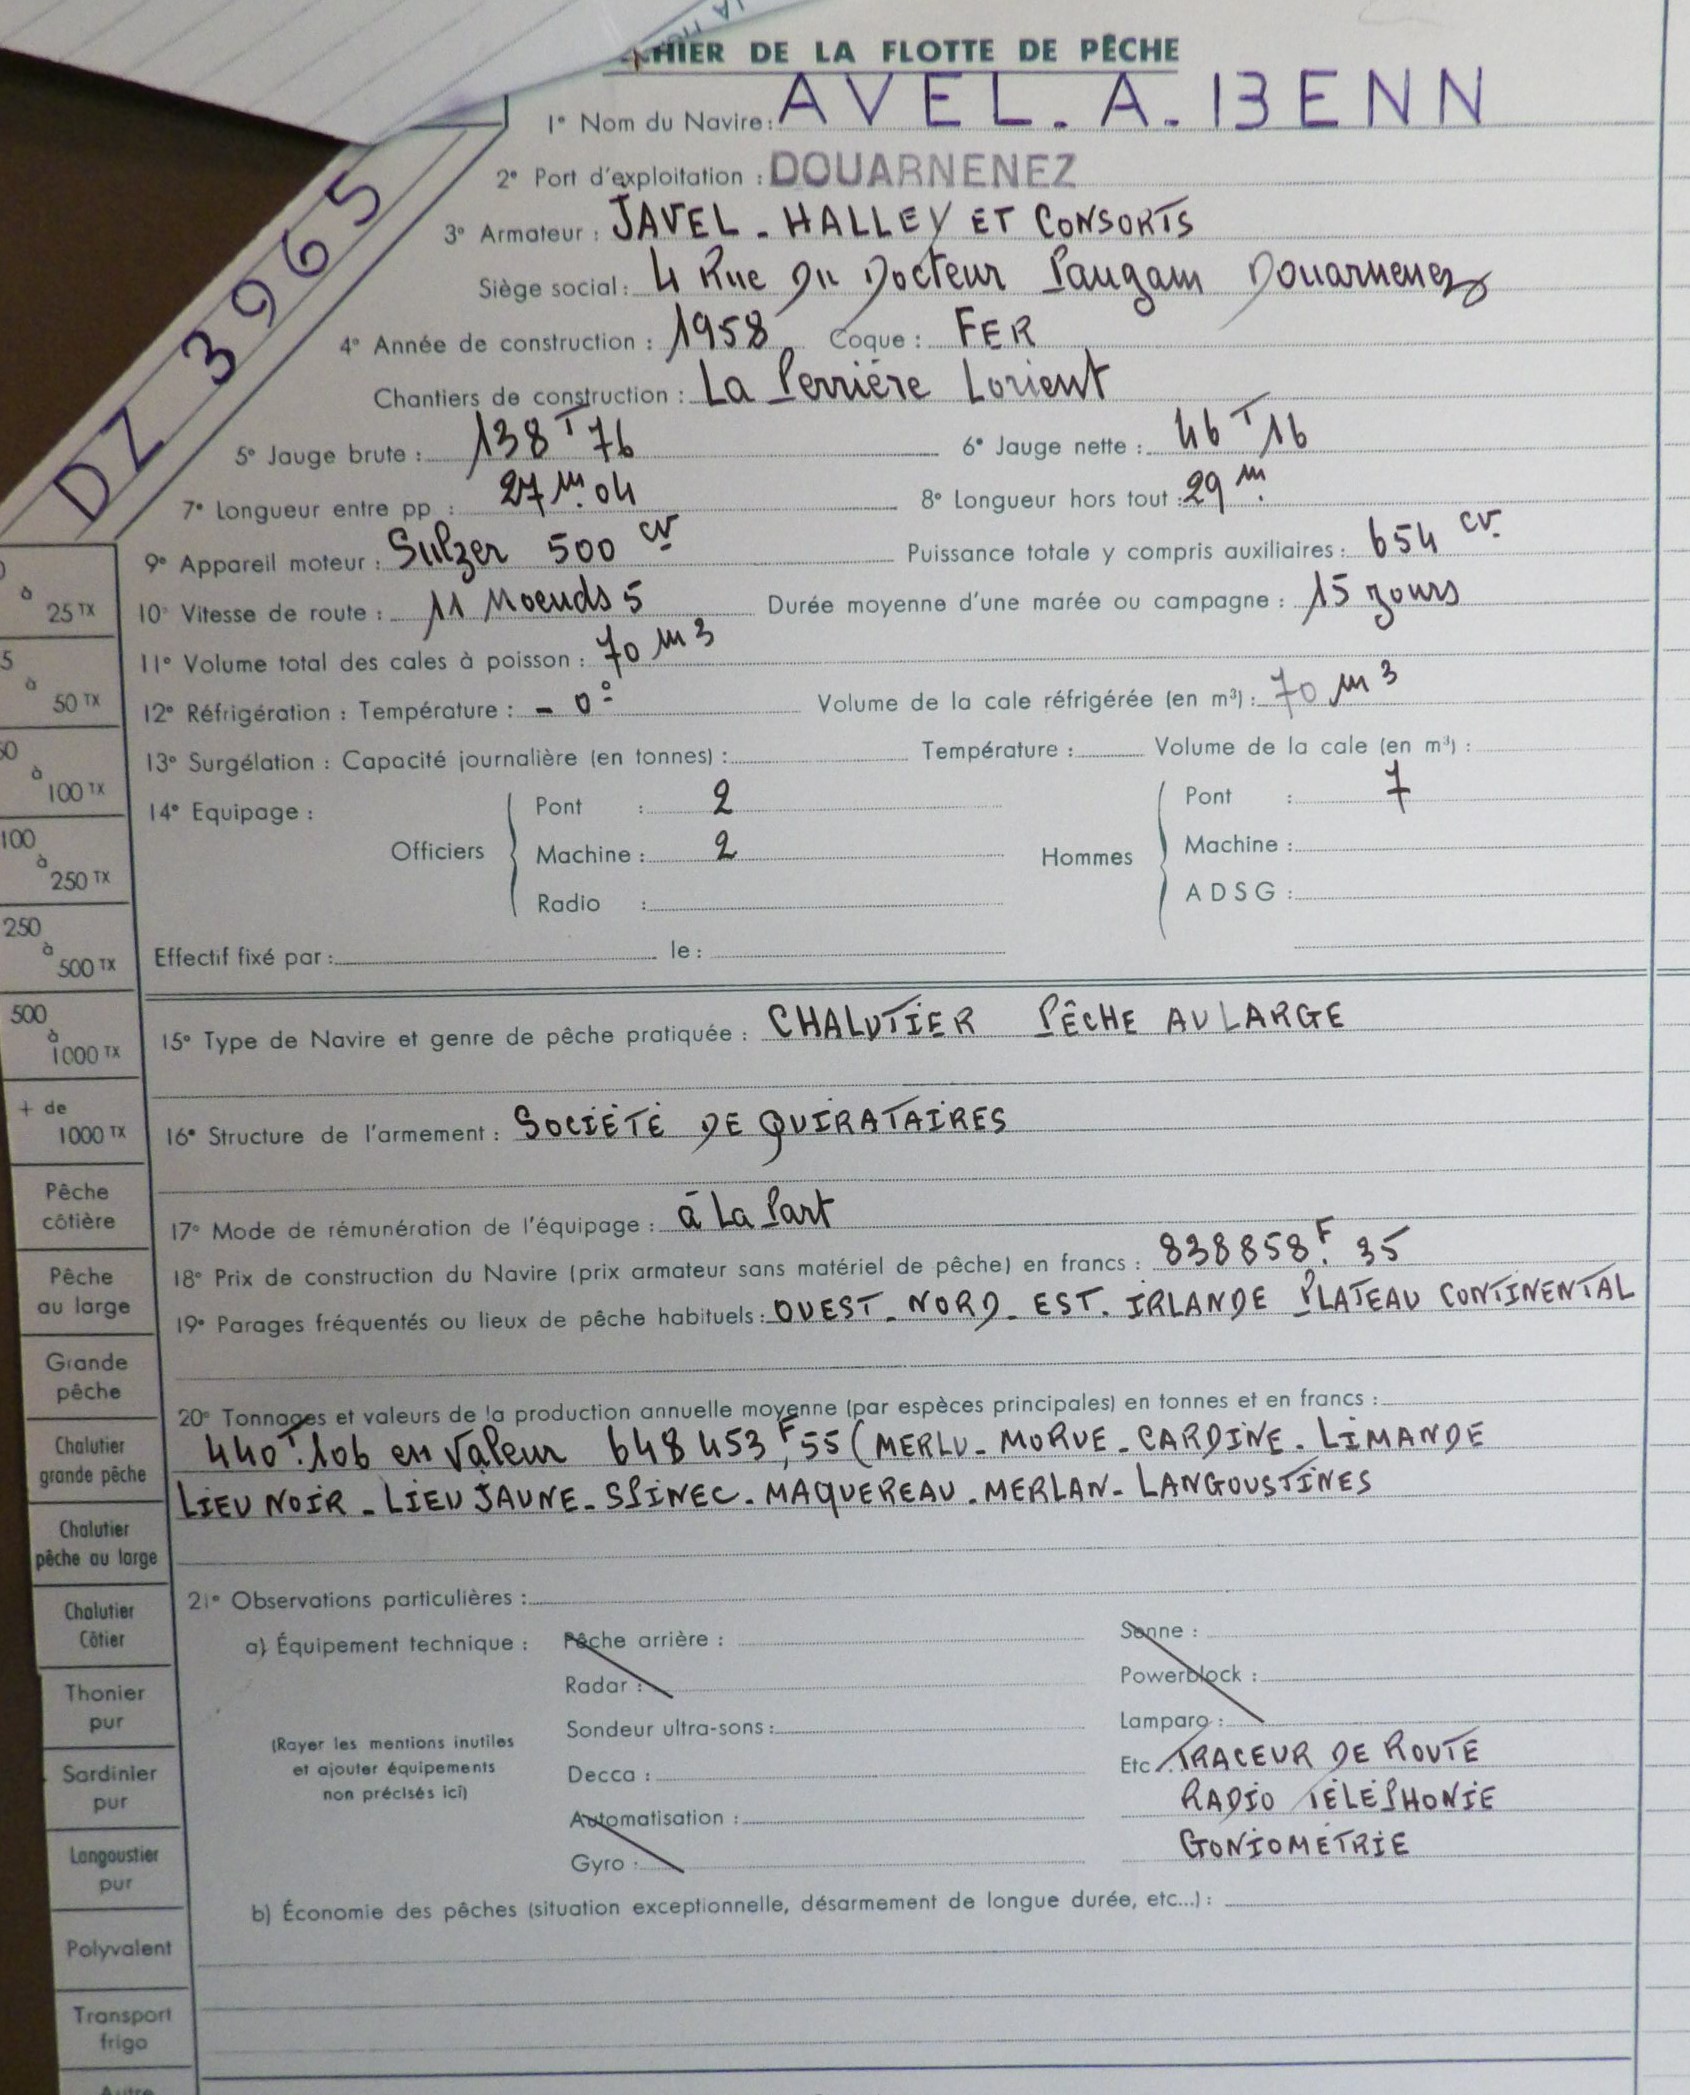 HIER DE LA FLOTTE DE PÊCHE
1° Nom du Navire : AVEL. A. BENN
2° Port d'exploitation : DOUARNENEZ
3° Armateur : JAVEL - HALLEY ET CONSORTS
Siège social : 4 Rue Du Docteur Paugam Douarnenez
DZ 3965
4° Année de construction : 1958 Coque : FER
Chantiers de construction : La Perrière Lorient
5° Jauge brute : 138 T 76 6° Jauge nette : 46 T 16
7° Longueur entre pp : 27 m. 04 8° Longueur hors tout : 29 m.
9° Appareil moteur : Sulzer 500 cv Puissance totale y compris auxiliaires : 654 cv.
10° Vitesse de route : 11 Noeuds 5 Durée moyenne d'une marée ou campagne : 15 jours
11° Volume total des cales à poisson : 70 m3
12° Réfrigération : Température : - 0° Volume de la cale réfrigérée (en m³) : 70 m3
13° Surgélation : Capacité journalière (en tonnes) : Température : Volume de la cale (en m³) :
14° Equipage :
Officiers
Pont : 2
Machine : 2
Radio :
Hommes
Pont : 7
Machine :
A D S G :
Effectif fixé par : le :
15° Type de Navire et genre de pêche pratiquée : CHALUTIER PÊCHE AU LARGE
16° Structure de l'armement : SOCIÉTÉ DE QUIRATAIRES
17° Mode de rémunération de l'équipage : à La Part
18° Prix de construction du Navire (prix armateur sans matériel de pêche) en francs : 838858F. 35
19° Parages fréquentés ou lieux de pêche habituels : OUEST - NORD - EST. IRLANDE PLATEAU CONTINENTAL
20° Tonnages et valeurs de la production annuelle moyenne (par espèces principales) en tonnes et en francs :
440T.106 en Valeur 648 453F,55 (MERLU - MORUE - CARDINE - LIMANDE
LIEU NOIR - LIEU JAUNE - SPINEC - MAQUEREAU - MERLAN - LANGOUSTINES
21° Observations particulières :
a) Équipement technique :
(Rayer les mentions inutiles
et ajouter équipements
non précisés ici)
Pêche arrière :
Radar :
Sondeur ultra-sons :
Decca :
Automatisation :
Gyro :
Senne :
Powerblock :
Lamparo :
Etc. TRACEUR DE ROUTE
RADIO TÉLÉPHONIE
GONIOMÉTRIE
b) Économie des pêches (situation exceptionnelle, désarmement de longue durée, etc...) :
0
à
25 TX
5
à
50 TX
50
à
100 TX
100
à
250 TX
250
à
500 TX
500
à
1000 TX
+ de
1000 TX
Pêche
côtière
Pêche
au large
Grande
pêche
Chalutier
grande pêche
Chalutier
pêche au large
Chalutier
Côtier
Thonier
pur
Sardinier
pur
Langoustier
pur
Polyvalent
Transport
frigo
Autre